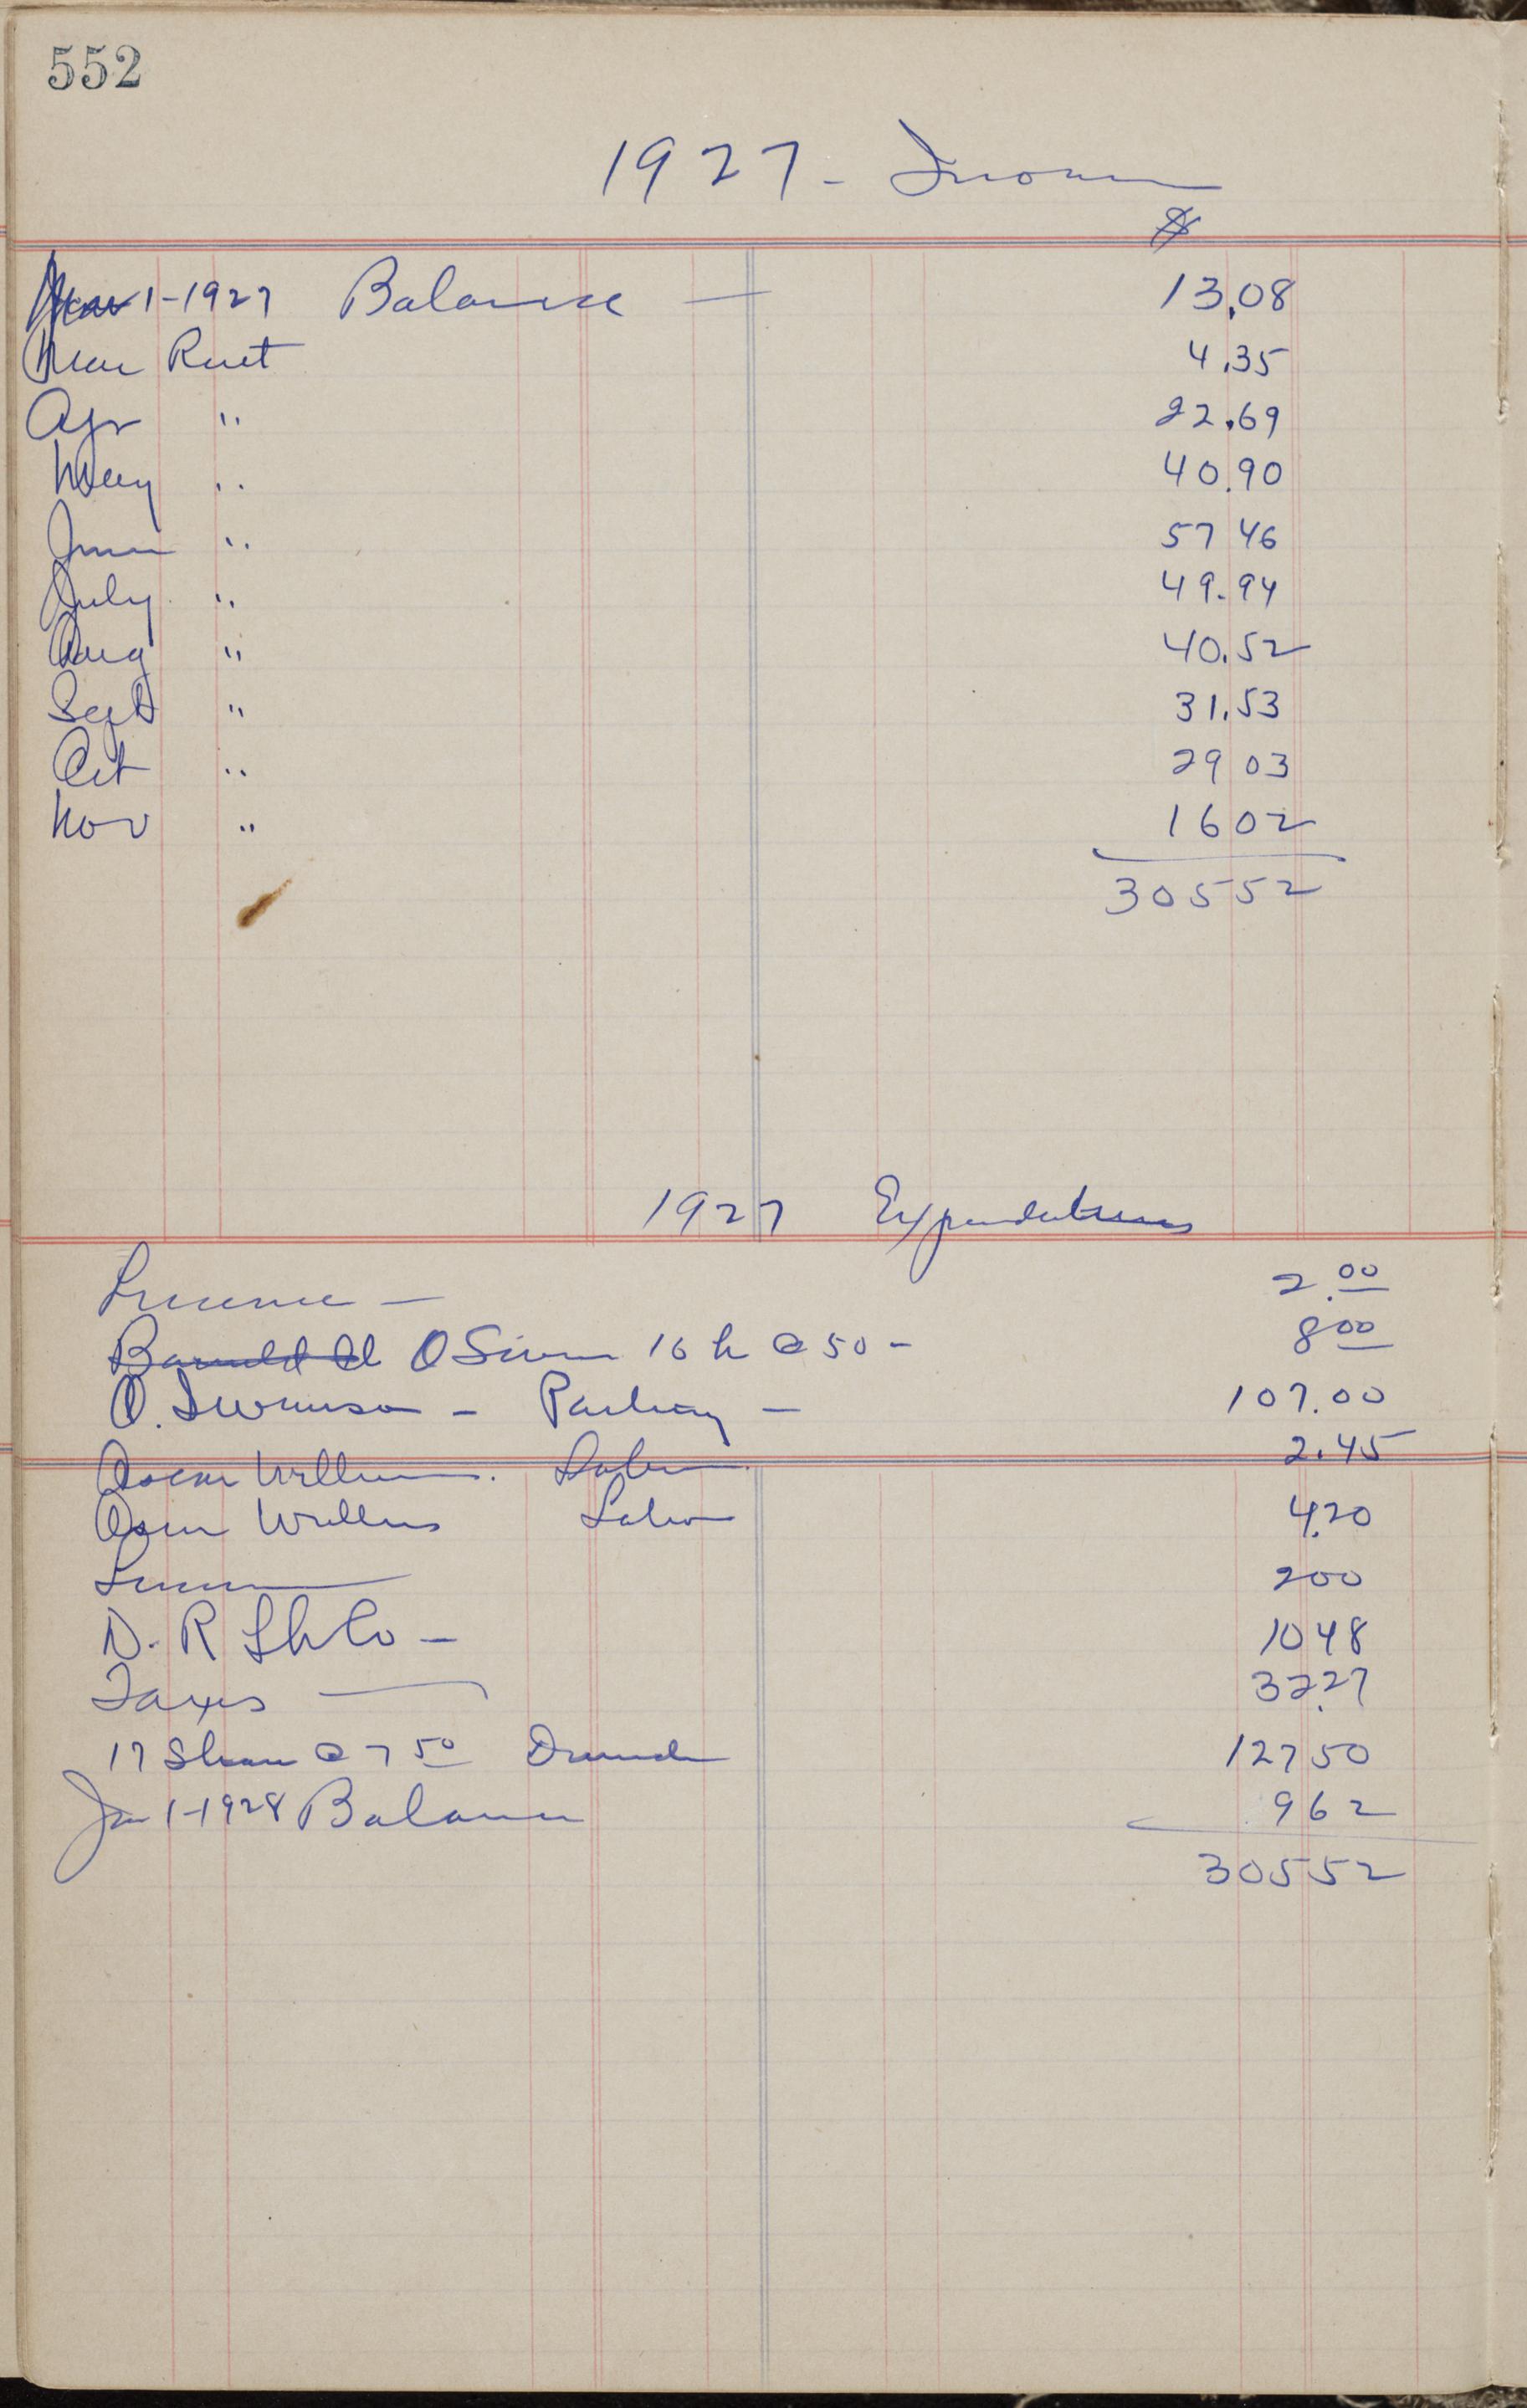 552
1927 - Income
$
Mar 1-1927 Balance — 13.08
Mar Rent 4.35
Apr " 22.69
May " 40.90
June " 57 46
July " 49.94
Aug " 40.52
Sept " 31.53
Oct " 29 03
Nov " 16 02
305 52
1927 Expenditures
License — 2.00
16 h @ 50 - 8 00
O. Swanson - - 107.00
Oscar Labor 2.45
Oscar Labor 4.20
License 2 00
D. R Co - 10 48
Taxes — 32.27
17 Share @ 7 50 Dividend 127 50
Jan 1-1928 Balance 9 62
305 52